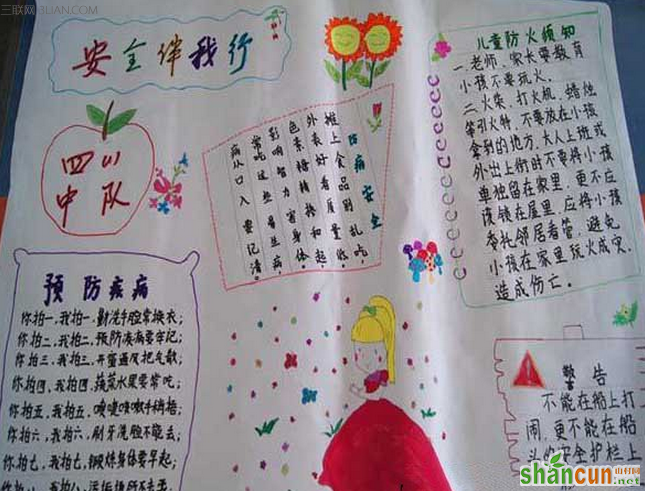 三联网 3LIAN.COM
安全伴我行
四(1)
中队
预防疾病
你拍一,我拍一,勤洗手脸常换衣;
你拍二,我拍二,预防疾病要牢记;
你拍三,我拍三,开窗通风把气散;
你拍四,我拍四,蔬菜水果要常吃;
你拍五,我拍五,
你拍六,我拍六,刷牙洗脸不能丢;
你拍七,我拍七,锻炼身体要早起;
你拍八,我拍八,
防病安全
摊上食品别乱吃
外表好看质量低
色素糖精掺和起
影响智力害身体
常吃这些易生病
病从口入要记清
儿童防火须知
一.老师、家长要教育
小孩不要玩火。
二.火柴、打火机、蜡烛
等引火物,不要放在小孩
拿到的地方,大人上班或
外出上街时不要将小孩
单独留在家里,更不应
该锁在屋里,应将小孩
委托邻居看管,避免
小孩在家里玩火成灾,
造成伤亡。
警告
不能在船上打
闹,更不能在船
头的安全护栏上
shancun 山村网
.net